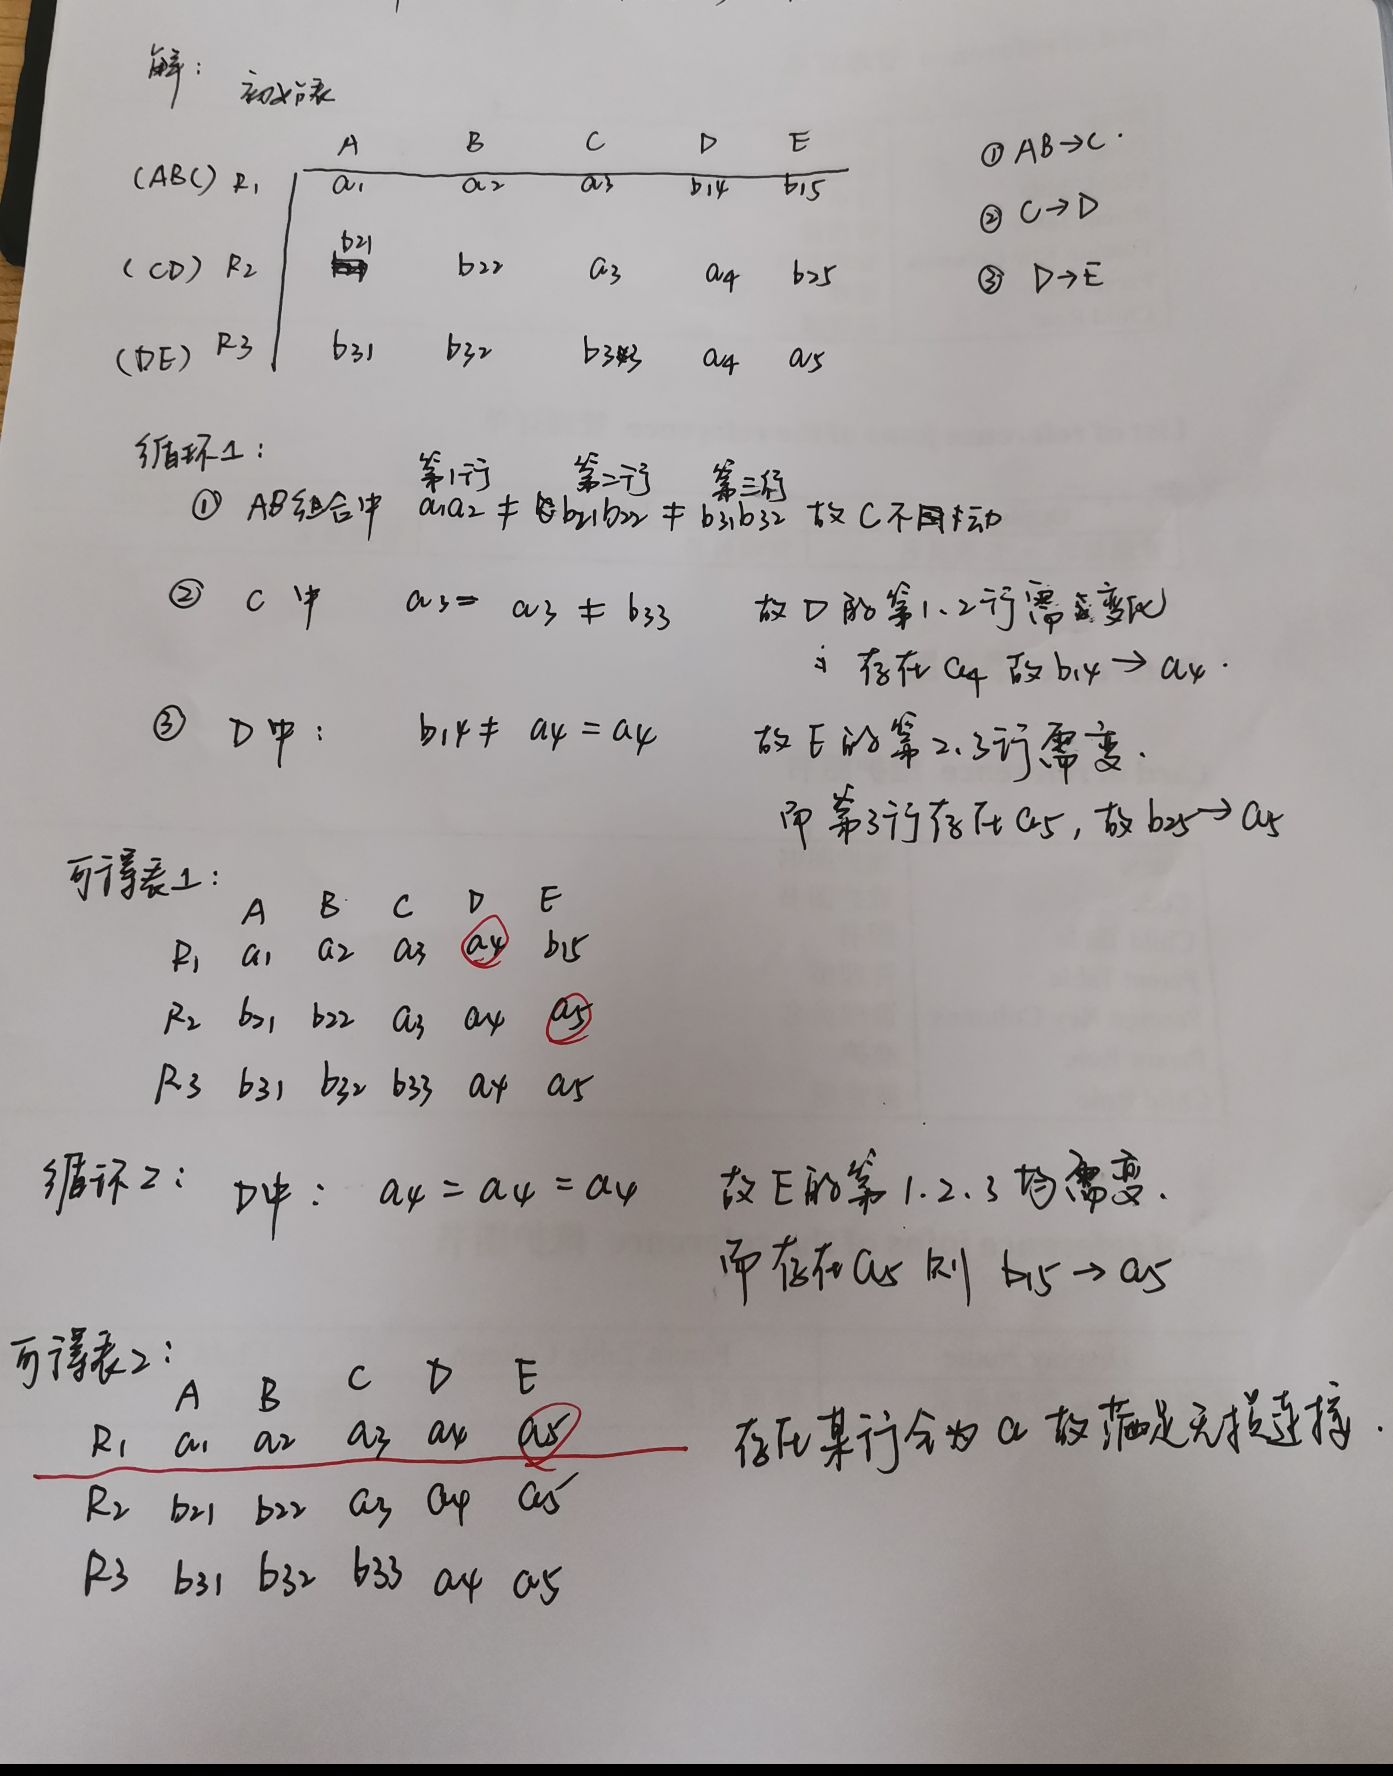 解：
初始表
A B C D E
(ABC) R1 a1 a2 a3 b14 b15
(CD) R2 b21 b22 a3 a4 b25
(DE) R3 b31 b32 b33 a4 a5
① AB→C.
② C→D
③ D→E
循环1:
第1行 第二行 第三行
① AB组合中 a1a2 ≠ b21b22 ≠ b31b32 故C不用动
② C中 a3 = a3 ≠ b33 故D的第1.2行需变化
存在a4 故b14→a4.
③ D中: b14 ≠ a4 = a4 故E的第2.3行需变.
而第3行存在a5, 故b25→a5
可得表1:
A B C D E
R1 a1 a2 a3 a4 b15
R2 b21 b22 a3 a4 a5
R3 b31 b32 b33 a4 a5
循环2: D中: a4 = a4 = a4 故E的第1.2.3均需变.
而存在a5则 b15→a5
可得表2:
A B C D E
R1 a1 a2 a3 a4 a5
存在某行全为a故满足无损连接.
R2 b21 b22 a3 a4 a5
R3 b31 b32 b33 a4 a5